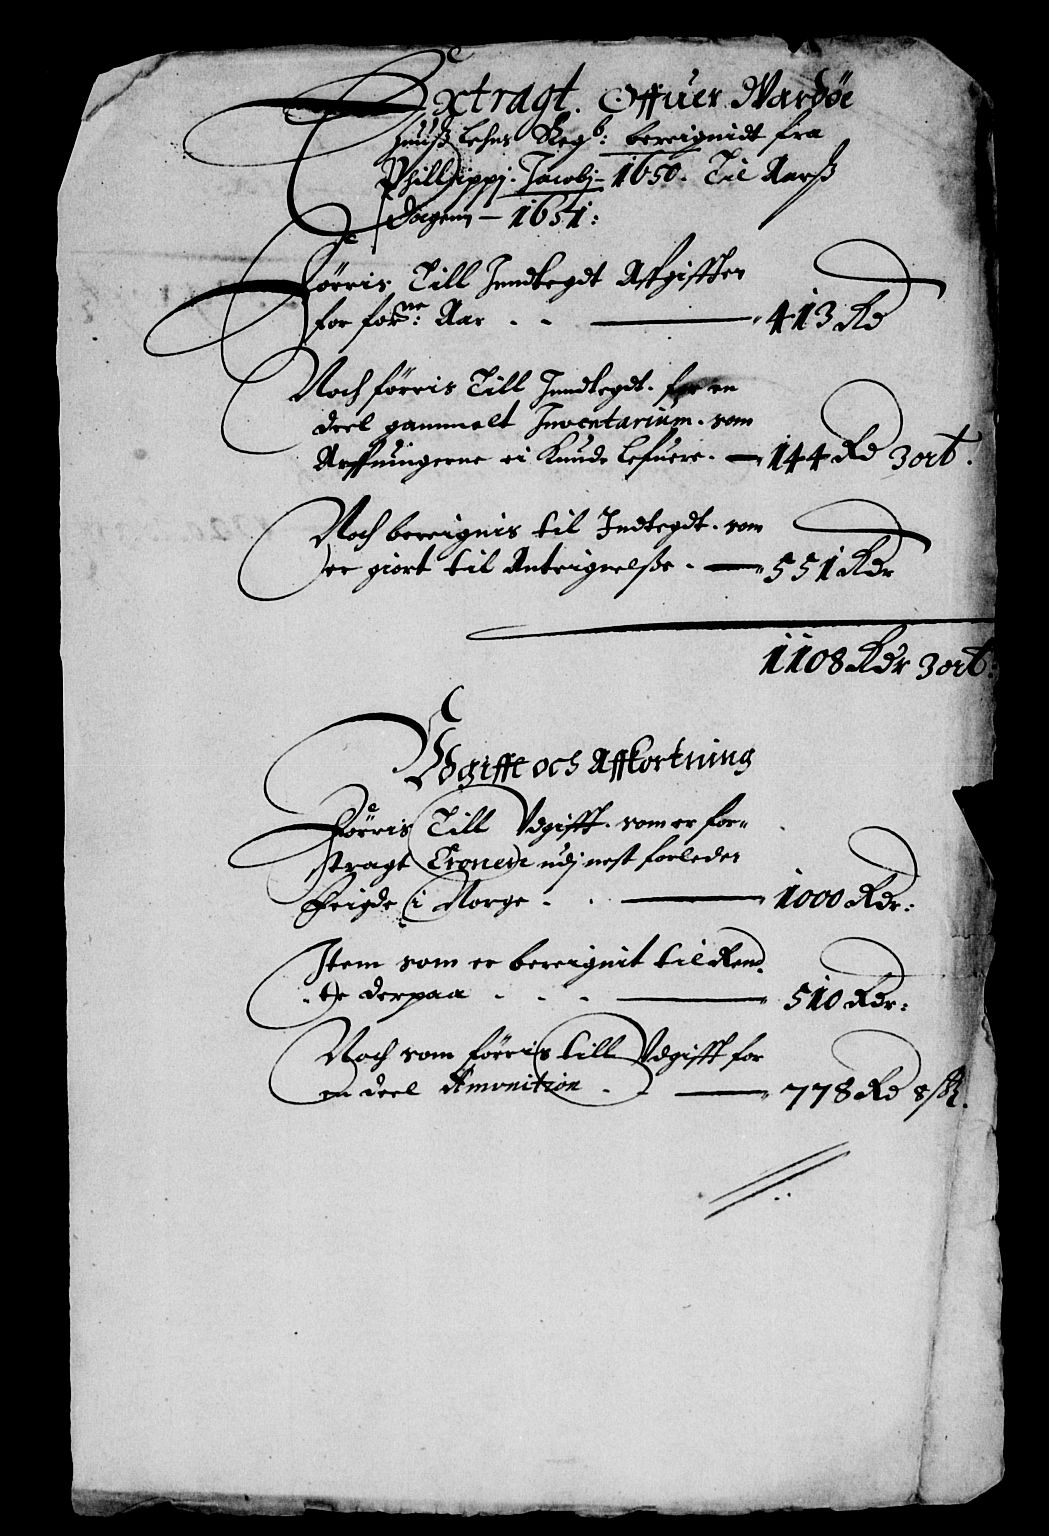 Extragt. Offuer Wardøe
huuß Lehns Regb: bereignidt fra
Phillippj. Jacobj. 1650. Til Aarß
dagenn – 1651:
Førris Till Inndtegdt Afgiffter
for forne: Aar . . — 413 Rd
Noch førris Till Inndtegdt. for en
deel gammelt Inventarium. som
Arffuingerne ei kunde lefuere. — 144 Rd 3 ort.
Noch bereignis til Indtegdt. som
er giort til Anteignelße. — 551 Rdr
1108 Rdr 3 ort:
Vdgifft och Affkortning
Førris Till Vdgifft. som er for=
stragt Cronen udj nest forleden
Feigde i Norge . . — 1000 Rdr:
Item som er bereignit til Rend
te derpaa . . . — 510 Rdr:
Noch som førris till Vdgifft for
en deel Amonition . — 778 Rd 8 ß.